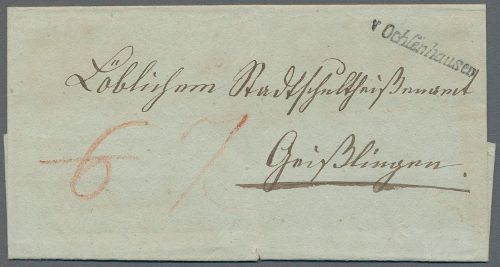 v Ochsenhausen
Löblichem Stadtschultheißenamt
Geißlingen.
6 7